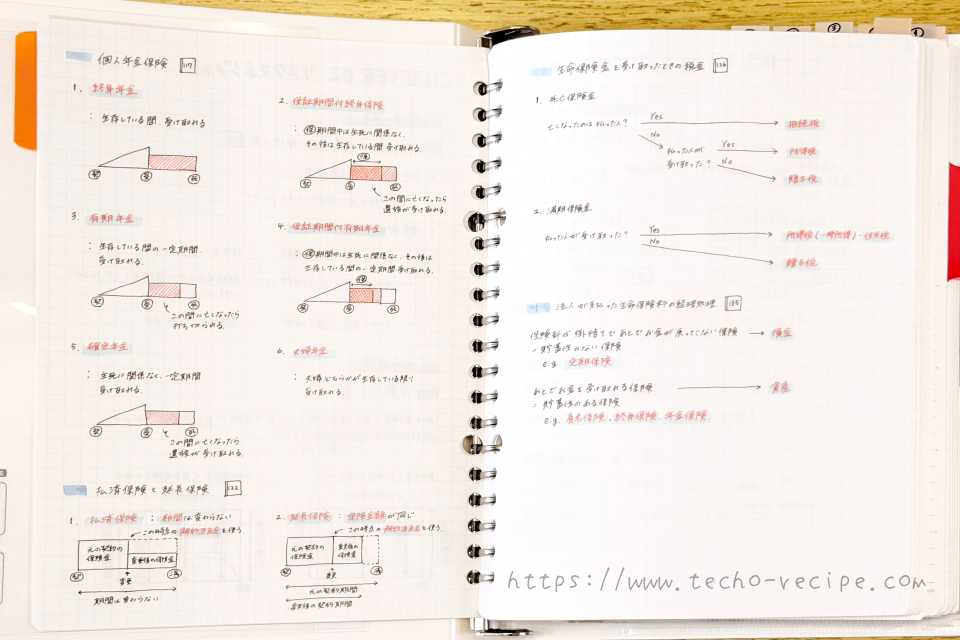 個人年金保険 117
1. 終身年金
: 生存している間、受け取れる
契 受 死
2. 保証期間付終身保険
: 保期間中は生死に関係なく、
その後は生存している間 受け取れる。
保
契 受 死
この間に亡くなったら
遺族が受け取れる。
3. 有期年金
: 生存している間の一定期間、
受け取れる。
契 受 死
この間に亡くなったら
打ち切られる。
4. 保証期間付有期年金
: 保期間中は生死に関係なく、その後は
生存している間の一定期間受け取れる。
保
契 受 死
5. 確定年金
: 生死に関係なく、一定期間
受け取れる。
契 受 死
この間に亡くなったら
遺族が受け取れる。
6. 夫婦年金
: 夫婦どちらかが生存している限り
受け取れる。
払済保険と延長保険 122
1. 払済保険 : 期間は変わらない
この時点の解約返戻金を使う
元の契約の
保険金
変更後の保険金
契 変更 満
期間は変わらない
2. 延長保険 : 保険金額が同じ
この時点の解約返戻金を使う
元の契約の
保険金
変更後の
保険金
契 変更 満
元の契約期間
変更後の契約期間
生命保険金を受け取ったときの税金 126
1. 死亡保険金
亡くなったのは払った人?
Yes
相続税
No
払った人が
受け取った?
Yes
所得税
No
贈与税
2. 満期保険金
払った人が受け取った?
Yes
所得税(一時所得)・住民税
No
贈与税
法人が支払った生命保険料の経理処理 135
保険料が掛捨てであとでお金が戻ってこない保険 → 損金
= 貯蓄性のない保険
e.g. 定期保険
あとでお金を受け取れる保険 → 資産
= 貯蓄性のある保険
e.g. 養老保険、終身保険、年金保険
https://www.techo-recipe.com